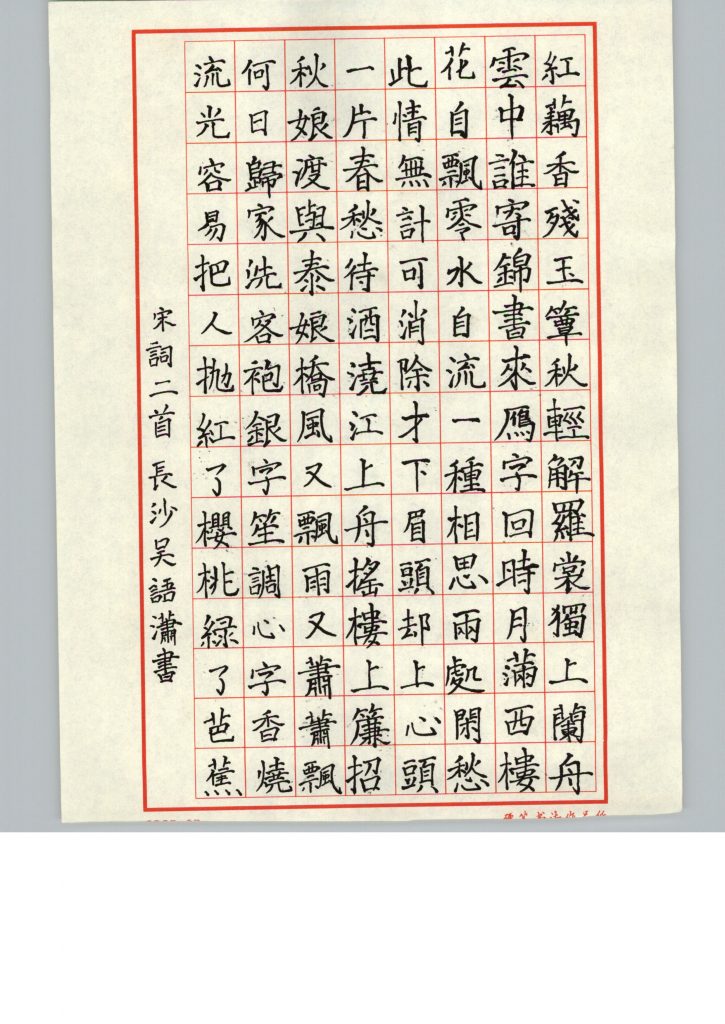 紅藕香殘玉簟秋輕解羅裳獨上蘭舟
雲中誰寄錦書來鴈字回時月滿西樓
花自飄零水自流一種相思兩處閑愁
此情無計可消除才下眉頭却上心頭
一片春愁待酒澆江上舟搖樓上簾招
秋娘渡與泰娘橋風又飄雨又蕭蕭飄
何日歸家洗客袍銀字笙調心字香燒
流光容易把人拋紅了櫻桃綠了芭蕉
宋詞二首 長沙吳語瀟書